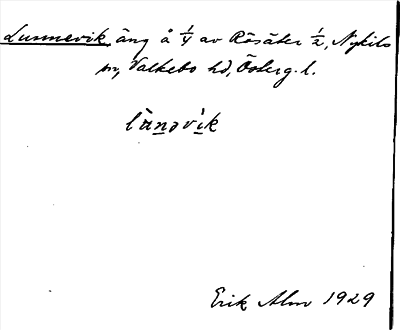 Lunnevik, äng å 1/4 av Rösäter 1/2, Nykils
sn, Valkebo hd, Österg. l.
Erik Alm 1929